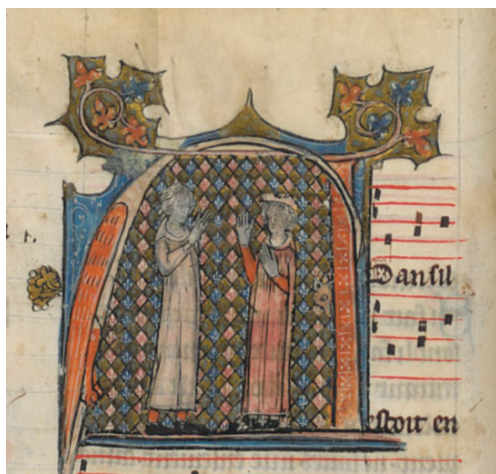 Dan sil
estoit en